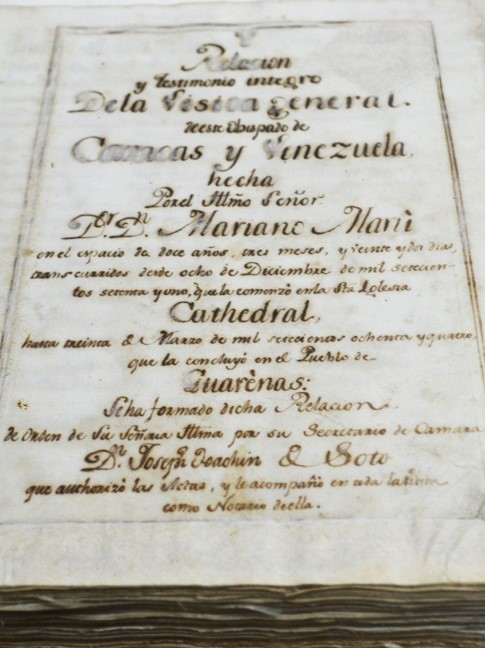 Relacion
y testimonio integro
Dela Visita general.
de este Obispado de
Caracas y Venezuela,
hecha
Por el Illmo Señor
Dor. Dn. Mariano Martì
en el espacio de doce años, tres meses, y veinte y dos dias,
transcurridos desde ocho de Diciembre de mil setecien-
tos setenta y uno, que la comenzò en la Sta Iglesia
Cathedral,
hasta treinta de Marzo de mil setecientos ochenta y quatro,
que la concluyò en el Pueblo de
Guarènas:
Se ha formado dicha Relacion
de Orden de Su Señoria Illma por su Secretario de Camara
Dn. Joseph Joachin de Soto
que authorizò las Actas, y le acompañò en toda la
como Notario de ella.